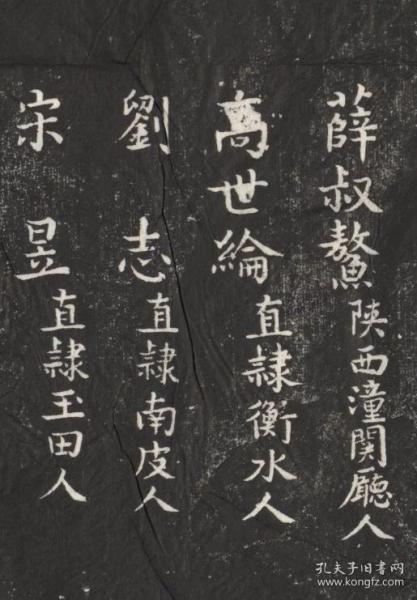 薛叔鰲陝西潼関廳人
高世綸直隷衡水人
劉志直隷南皮人
宋昱直隷玉田人
孔夫子旧书网
www.kongfz.com